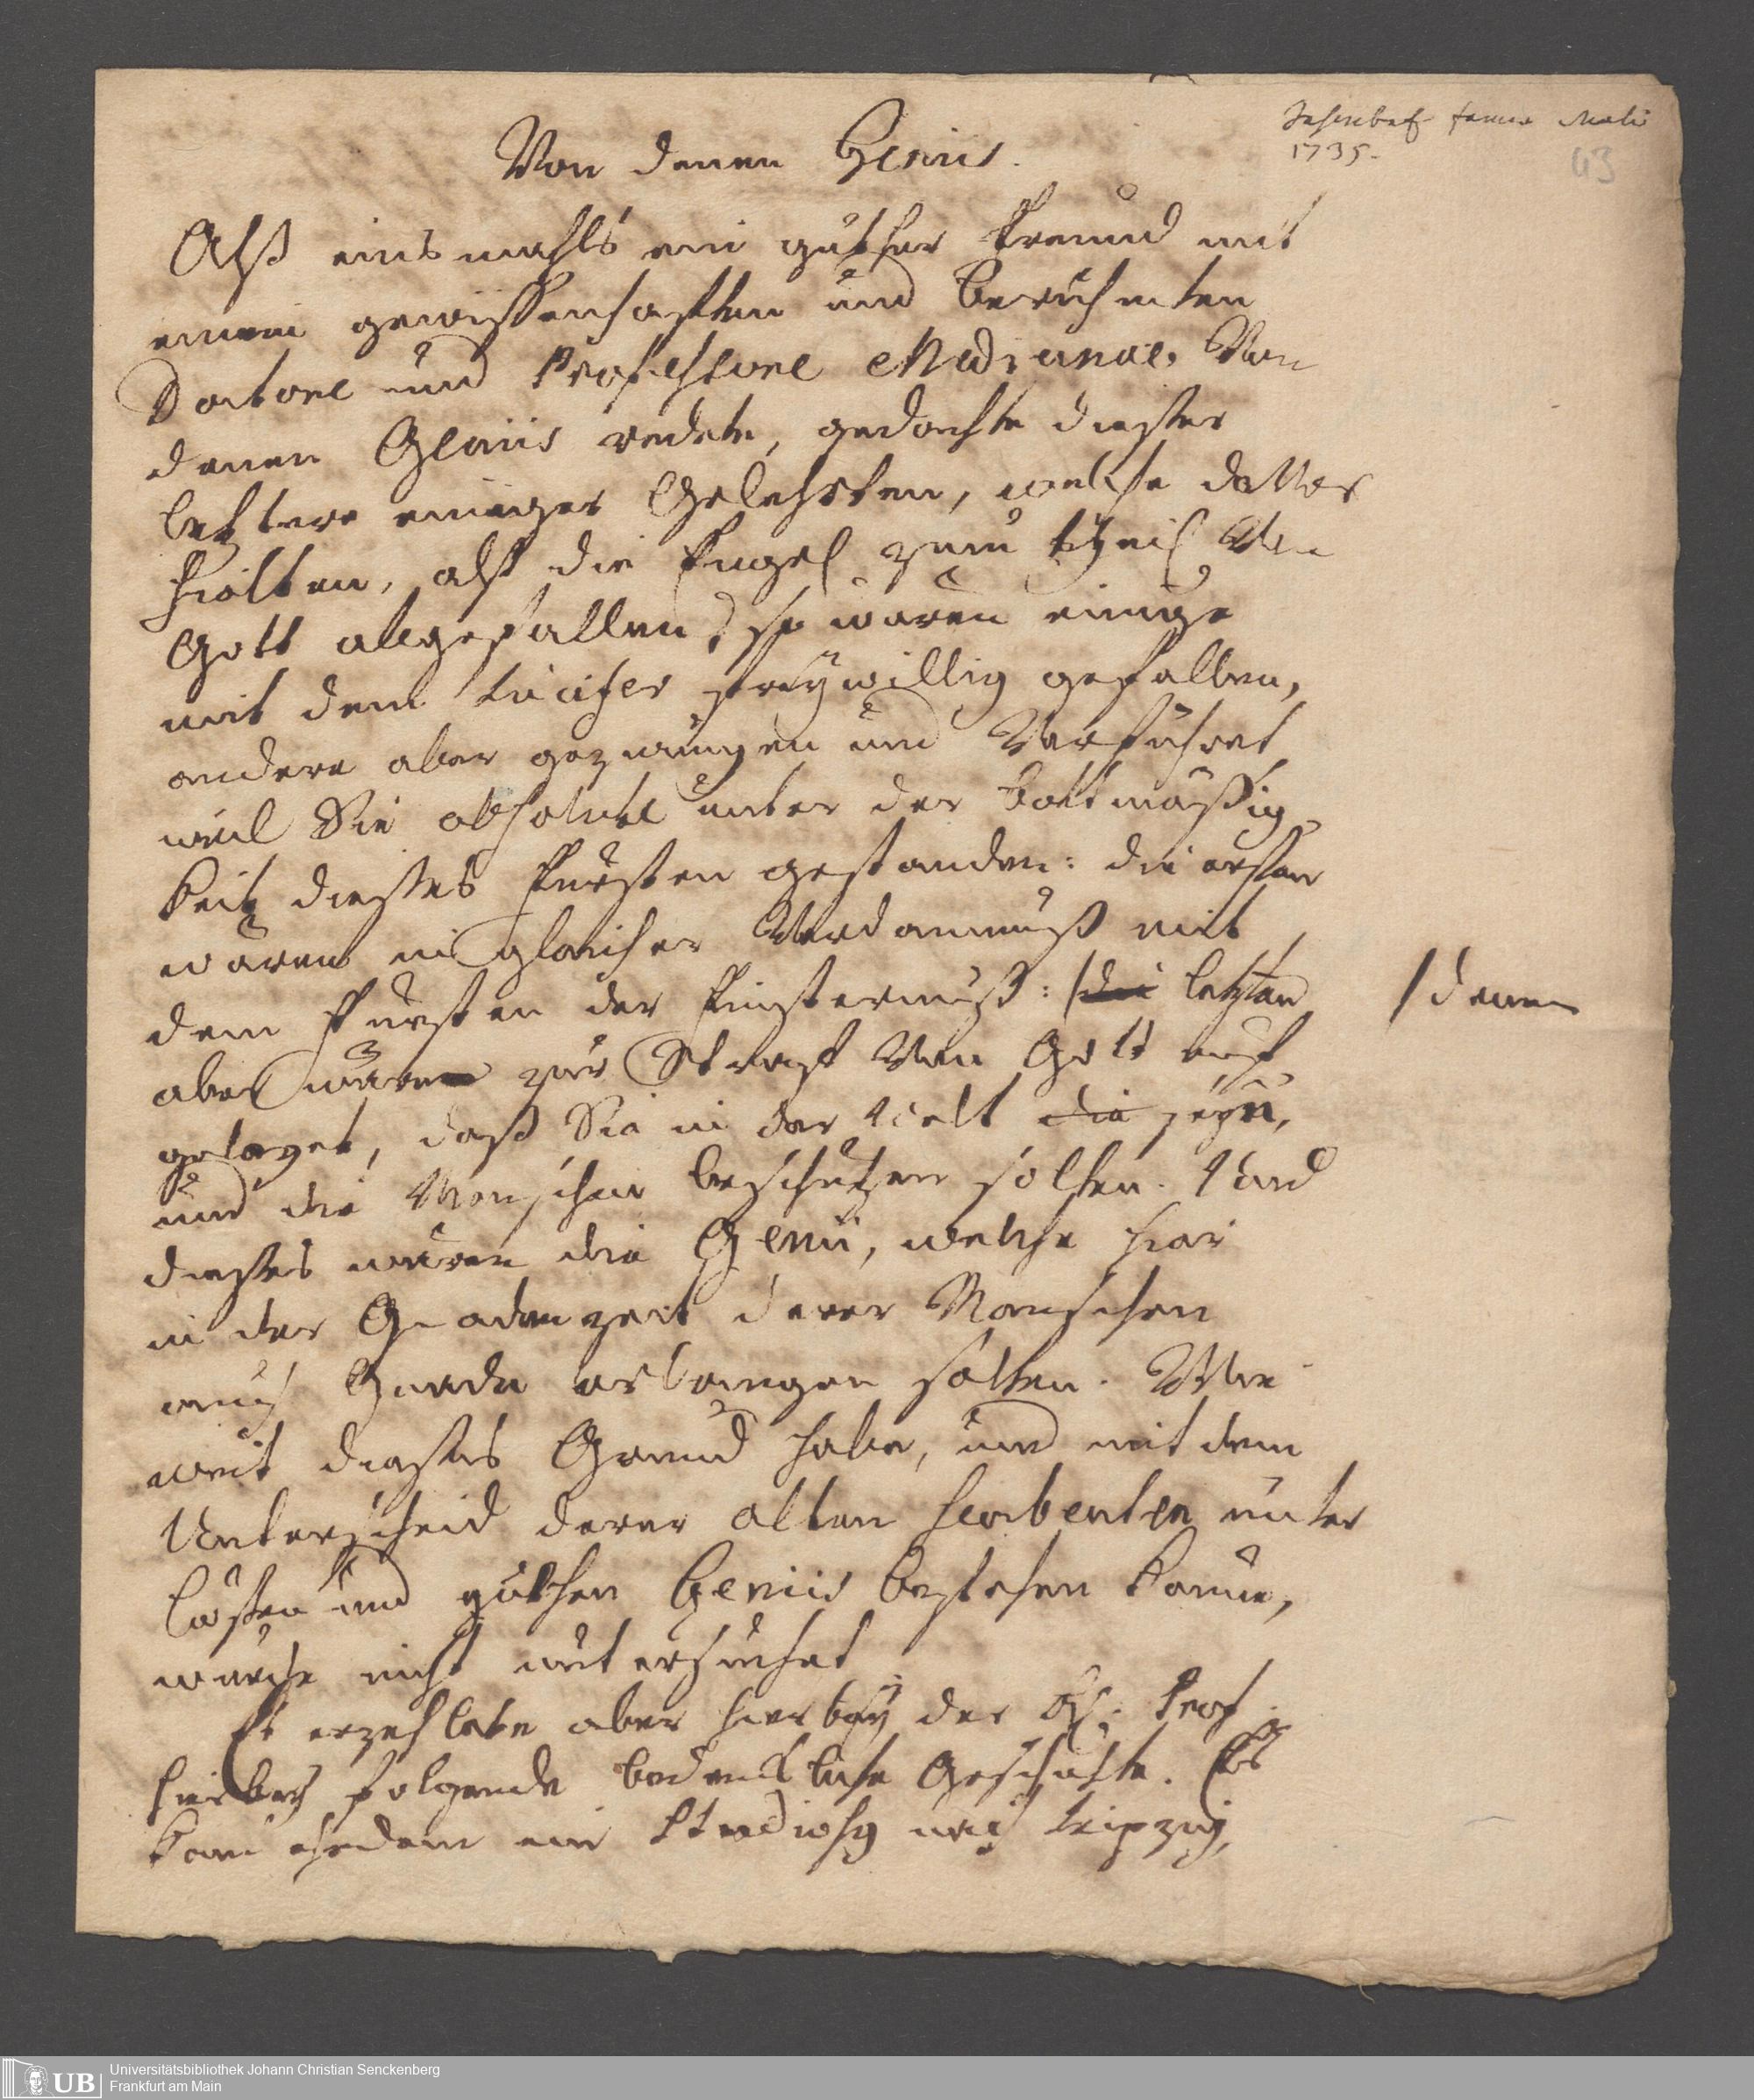 1735.
43
Von denen Geniis.
Alß einsmahls ein guther Freund mit
einem gewissenhafften und beruhmten
Doctore und Professore Medicinae, Von
denen Geniis redete, gedachte dießer
letztere einiger Gelehrten, welche davor
hielten, alß die Engel zum theil Von
Gott abgefallen, so wären einige
mit dem Lucifer freÿwillig gefallen,
andere aber gezwungen und Verführet,
weil Sie absolute unter der Bottmäßig-
keit dießes Fürsten gestanden: die ersten
wären in gleicher Verdamnuß mit
dem Fürsten der Finsternuß: /die letzten /denen
aber wäre zur Straff Von Gott auf-
geleget, daß Sie in der Welt die seÿn,
und die Menschen beschützen solten. Und
dießes wären die Genii, welche hier
in der Gnadenzeit derer Menschen
auch Gnade erlangen solten. Wie
weit dießes Grund habe, und mit dem
Unterscheid derer alten unter
bößen und guthen Geniis bestehen könne,
wurde nicht untersuchet
Es erzehlete aber hierbeÿ der H. Prof.
hierbey folgende bedenckliche Geschichte. Es
kam ehedem ein Studiosus nach Leipzig,
Universitätsbibliothek Johann Christian Senckenberg
UB
Frankfurt am Main